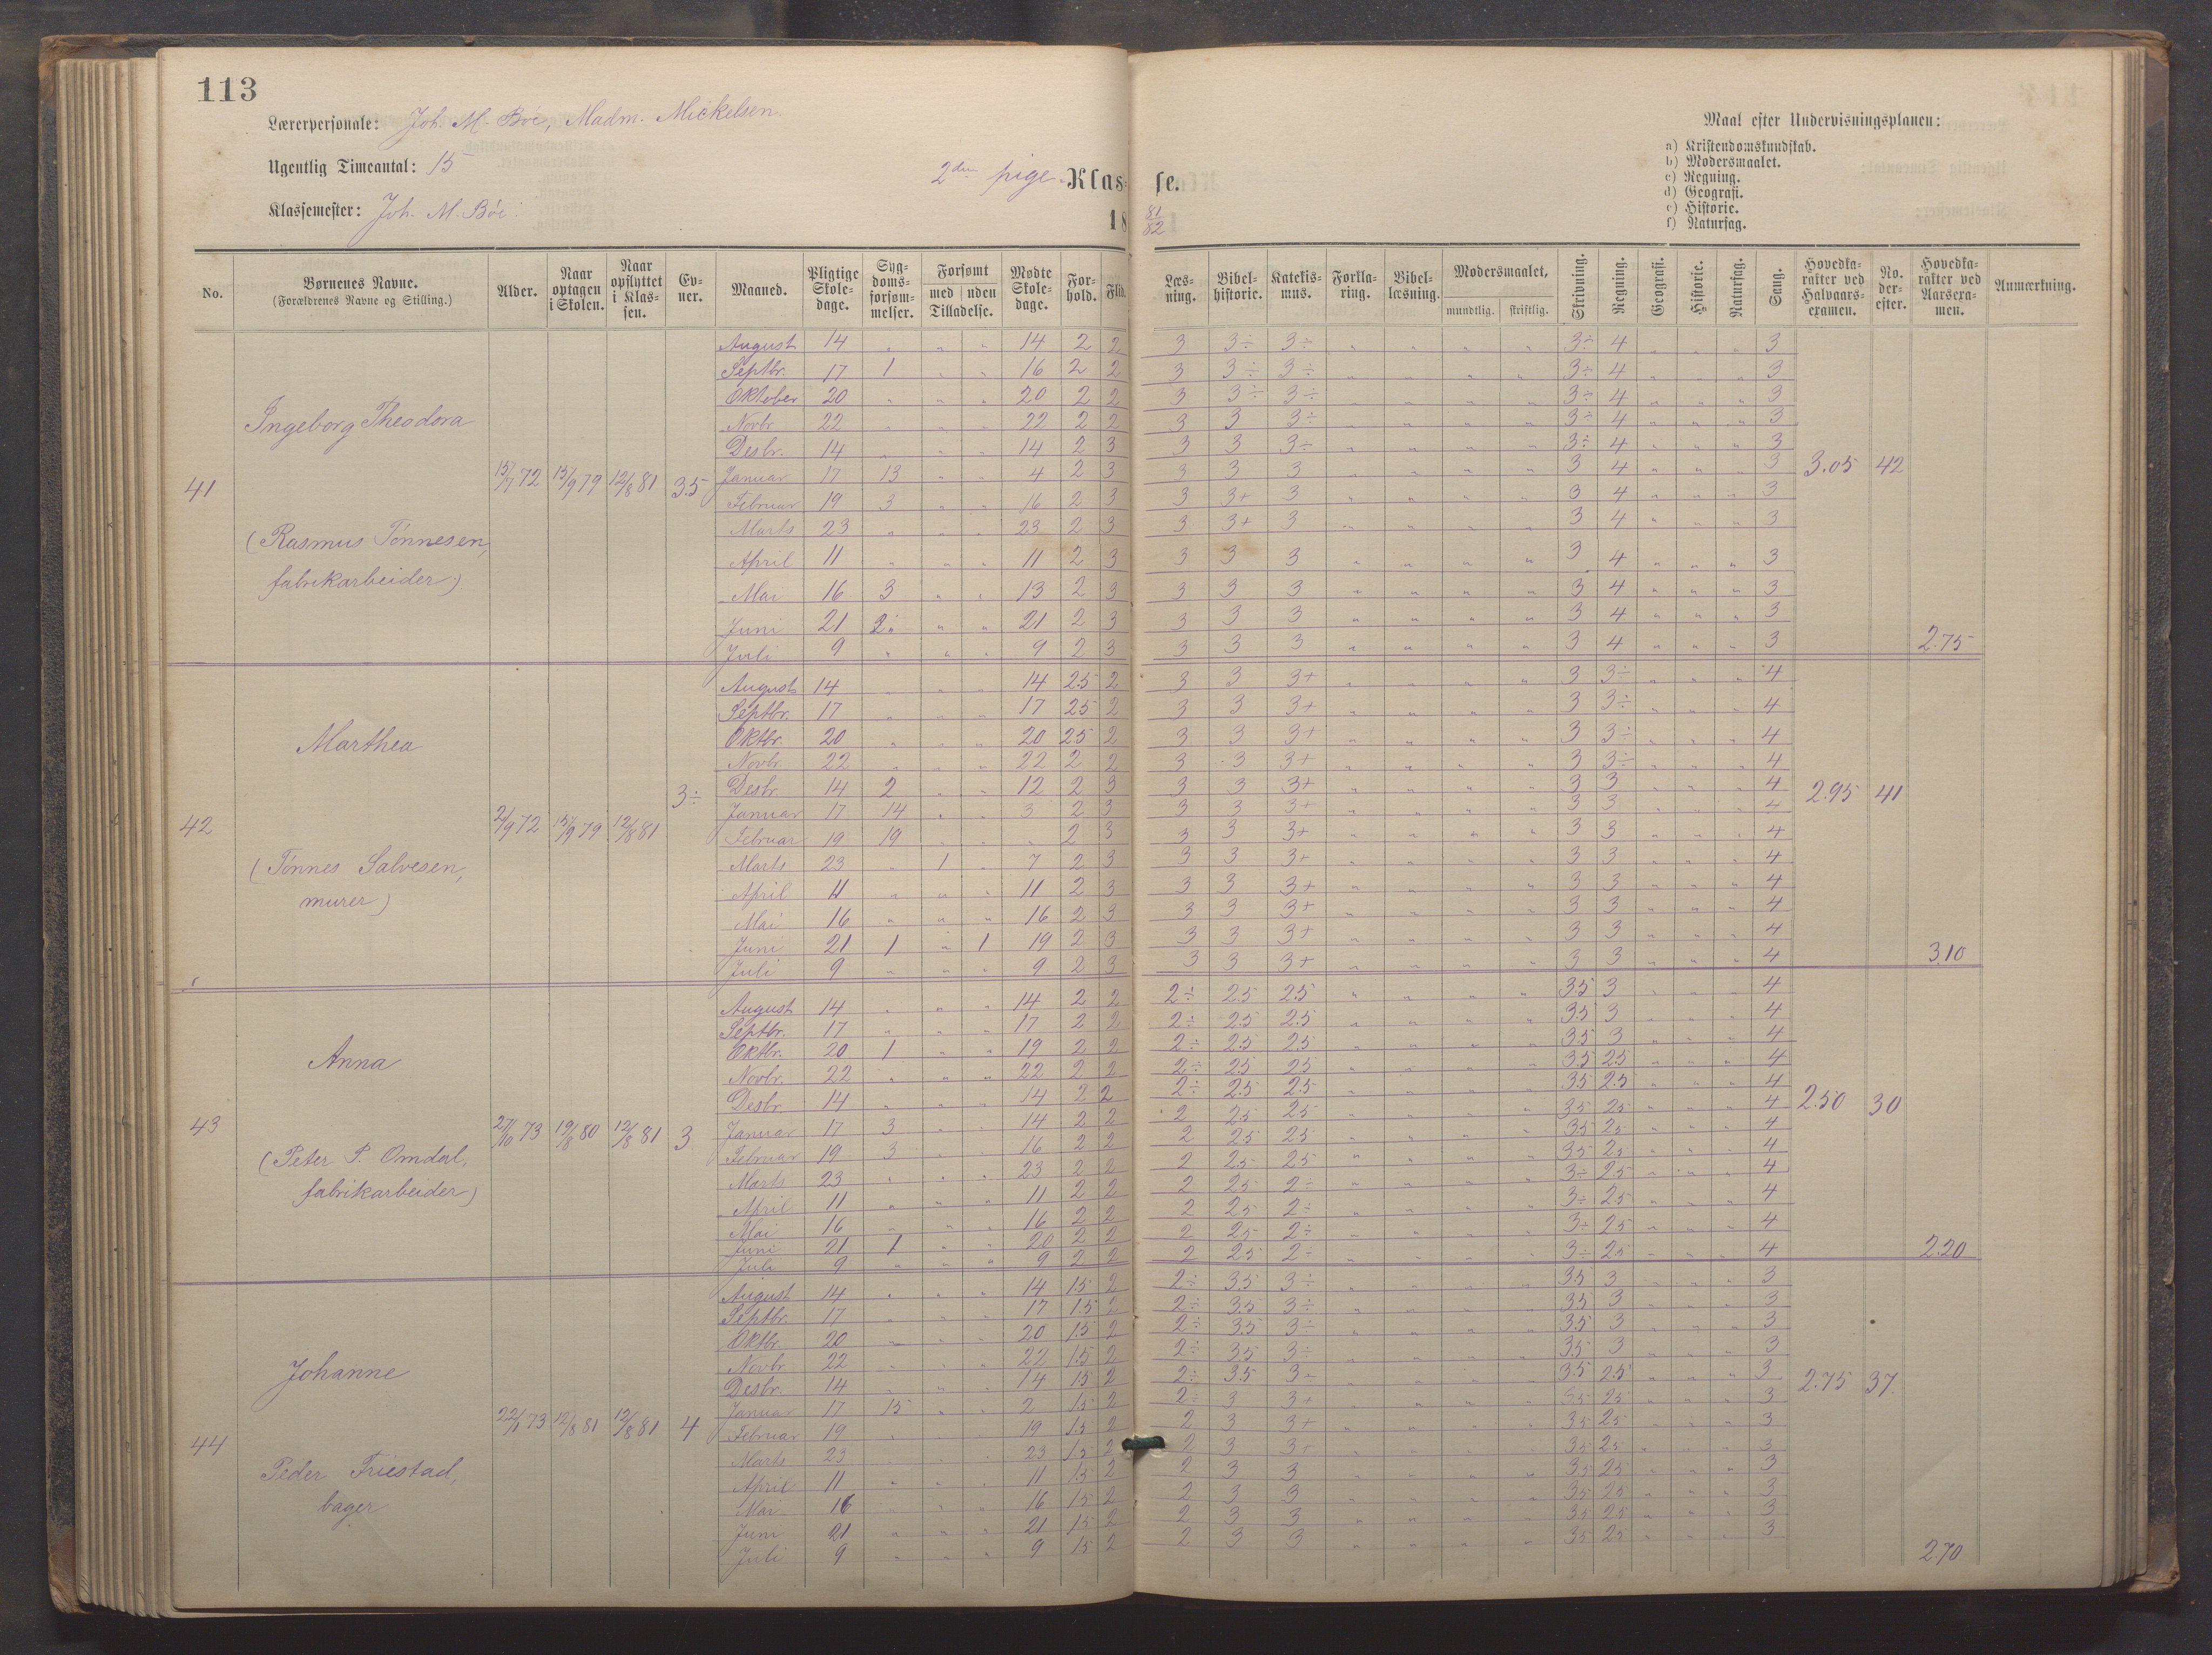 113
Lærerpersonale: Joh. M. Bøe, Madm. Mickelsen.
Ugentlig Timeantal: 15
Klassemester: Joh. M. Bøe.
2den pige- Klasse.
18 81/82
Maal efter Undervisningsplanen:
a) Kristendomskundskab.
b) Modersmaalet.
c) Regning.
d) Geografi.
e) Historie.
f) Naturfag.
No. | Børnenes Navne. (Forældrenes Navne og Stilling.) | Alder. | Naar optagen i Skolen. | Naar opflyttet i Klassen. | Evner. | Maaned. | Pligtige Skoledage. | Sygdomsforsømmelser. | Forsømt med Tilladelse. | uden Tilladelse. | Mødte Skoledage. | Forhold. | Flid. | Læsning. | Bibelhistorie. | Katekismus. | Forklaring. | Bibellæsning. | Modersmaalet, mundtlig. | skriftlig. | Skrivning. | Regning. | Geografi. | Historie. | Naturfag. | Sang. | Hovedkarakter ved Halvaarsexamen. | No. derefter. | Hovedkarakter ved Aarsexamen. | Anmærkning.
41 Ingeborg Theodora
(Rasmus Tønnesen,
fabrikarbeider.)
15/7 72 15/9 79 12/8 81 3.5
August 14 " " " 14 2 2 3 3÷ 3÷ " " " " 3÷ 4 " " " 3
Septbr. 17 1 " " 16 2 2 3 3÷ 3÷ " " " " 3÷ 4 " " " 3
Oktober 20 " " " 20 2 2 3 3÷ 3÷ " " " " 3÷ 4 " " " 3
Novbr 22 " " " 22 2 2 3 3 3÷ " " " " 3÷ 4 " " " 3
Desbr. 14 " " " 14 2 3 3 3 3÷ " " " " 3÷ 4 " " " 3
Januar 17 13 " " 4 2 3 3 3 3 " " " " 3 4 " " " 3 3.05 42
Februar 19 3 " " 16 2 3 3 3+ 3 " " " " 3 4 " " " 3
Marts 23 " " " 23 2 3 3 3+ 3 " " " " 3 4 " " " 3
April 11 " " " 11 2 3 3 3 3 " " " " 3 4 " " " 3
Mai 16 3 " " 13 2 3 3 3 3 " " " " 3 4 " " " 3
Juni 21 " " " 21 2 3 3 3 3 " " " " 3 4 " " " 3
Juli 9 " " " 9 2 3 3 3 3 " " " " 3 4 " " " 3 2.75
42 Marthea
(Tønnes Salvesen,
murer)
2/9 72 15/9 79 12/8 81 3÷
August 14 " " " 14 2.5 2 3 3 3+ " " " " 3 3÷ " " " 4
Septbr. 17 " " " 17 2.5 2 3 3 3+ " " " " 3 3÷ " " " 4
Oktbr. 20 " " " 20 2.5 2 3 3 3+ " " " " 3 3÷ " " " 4
Novbr 22 " " " 22 2 2 3 3 3+ " " " " 3 3÷ " " " 4
Desbr. 14 2 " " 12 2 3 3 3 3+ " " " " 3 3 " " " 4 2.95 41
Januar 17 14 " " 3 2 3 3 3 3+ " " " " 3 3 " " " 4
Februar 19 19 " " " 2 3 3 3 3+ " " " " 3 3 " " " 4
Marts 23 " 1 " 7 2 3 3 3 3+ " " " " 3 3 " " " 4
April 11 " " " 11 2 3 3 3 3+ " " " " 3 3 " " " 4
Mai 16 " " " 16 2 3 3 3 3+ " " " " 3 3 " " " 4
Juni 21 1 " 1 19 2 3 3 3 3+ " " " " 3 3 " " " 4
Juli 9 " " " 9 2 3 3 3 3+ " " " " 3 3 " " " 4 3.10
43 Anna
(Peter P. Omdal,
fabrikarbeider)
27/10 73 19/8 80 12/8 81 3
August 14 " " " 14 2 2 2÷ 2.5 2.5 " " " " 3.5 3 " " " 4
Septbr. 17 " " " 17 2 2 2÷ 2.5 2.5 " " " " 3.5 3 " " " 4
Oktbr. 20 1 " " 19 2 2 2÷ 2.5 2.5 " " " " 3.5 3 " " " 4
Novbr. 22 " " " 22 2 2 2÷ 2.5 2.5 " " " " 3.5 2.5 " " " 4
Desbr 14 " " " 14 2 2 2÷ 2.5 2.5 " " " " 3.5 2.5 " " " 4
Januar 17 3 " " 14 2 2 2 2.5 2.5 " " " " 3.5 2.5 " " " 4 2.50 30
Februar 19 3 " " 16 2 2 2 2.5 2.5 " " " " 3.5 2.5 " " " 4
Marts 23 " " " 23 2 2 2 2.5 2.5 " " " " 3.5 2.5 " " " 4
April 11 " " " 11 2 2 2 2.5 2÷ " " " " 3÷ 2.5 " " " 4
Mai 16 " " " 16 2 2 2 2.5 2÷ " " " " 3÷ 2.5 " " " 4
Juni 21 1 " " 20 2 2 2 2.5 2÷ " " " " 3÷ 2.5 " " " 4
Juli 9 " " " 9 2 2 2 2.5 2÷ " " " " 3÷ 2.5 " " " 4 2.20
44 Johanne
Peder Friestad,
bager
22/11 73 12/8 81 12/8 81 4
August 14 " " " 14 1.5 2 2÷ 3.5 3÷ " " " " 3.5 3 " " " 3
Septbr. 17 " " " 17 1.5 2 2÷ 3.5 3÷ " " " " 3.5 3 " " " 3
Oktbr. 20 " " " 20 1.5 2 2÷ 3.5 3÷ " " " " 3.5 3 " " " 3
Novbr 22 " " " 22 1.5 2 2÷ 3.5 3÷ " " " " 3.5 3 " " " 3
Desbr. 14 " " " 14 1.5 2 2÷ 3.5 3÷ " " " " 3.5 2.5 " " " 3 2.75 37.
Januar 17 15 " " 2 1.5 2 2÷ 3 3+ " " " " 3.5 2.5 " " " 3
Februar 19 " " " 19 1.5 2 2 3 3+ " " " " 3.5 2.5 " " " 3
Marts 23 " " " 23 1.5 2 2 3 3+ " " " " 3.5 2.5 " " " 3
April 11 " " " 11 1.5 2 2 3 3 " " " " 3.5 2.5 " " " 3
Mai 16 " " " 16 1.5 2 2 3 3 " " " " 3.5 2.5 " " " 3
Juni 21 " " " 21 1.5 2 2 3 3 " " " " 3.5 2.5 " " " 3
Juli 9 " " " 9 1.5 2 2 3 3 " " " " 3.5 2.5 " " " 3 2.70